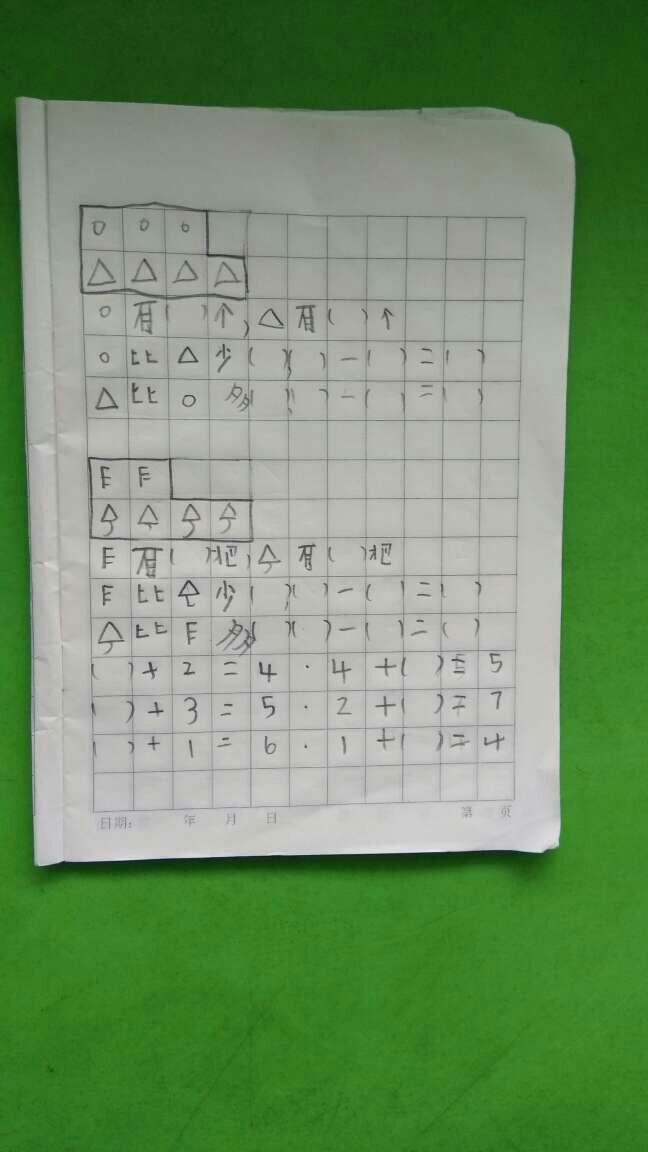 ○ ○ ○
△ △ △ △
○ 有( )个,△ 有( )个
○ 比 △ 少( )( )-( )=( )
△ 比 ○ 多( )( )-( )=( )
有( )把, 有( )把
比 少( )( )-( )=( )
比 多( )( )-( )=( )
( )+2=4 · 4+( )=5
( )+3=5 · 2+( )=7
( )+1=6 · 1+( )=4
日期: 年 月 日 第 页